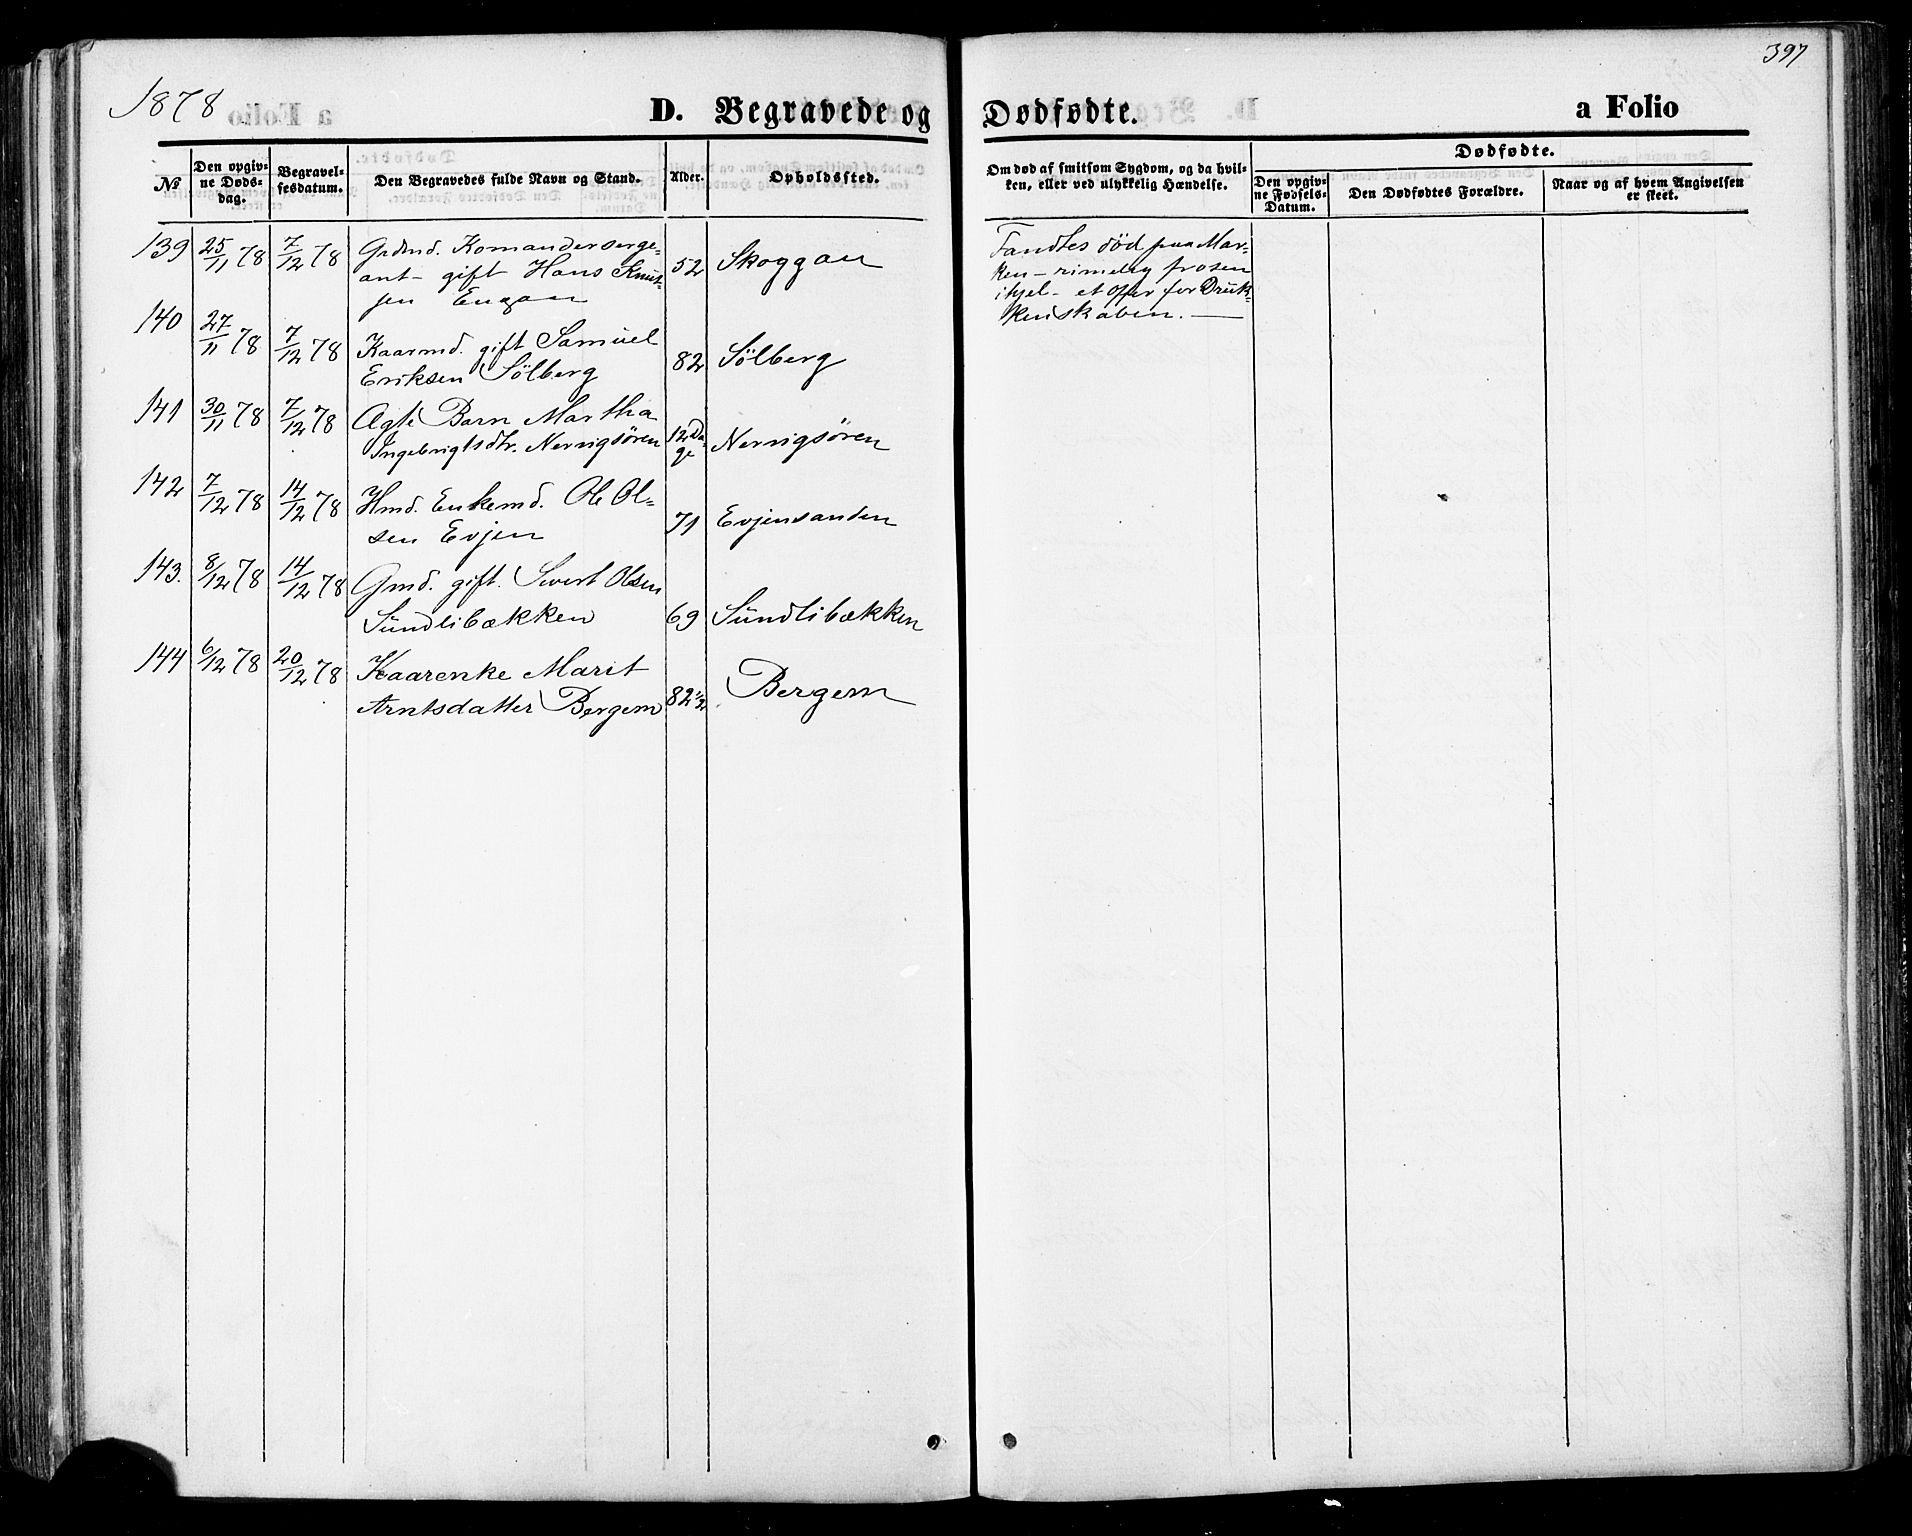 397
1878
D. Begravede og Dødfødte.
a Folio
№
Den opgivne Dødsdag.
Begravelsesdatum.
Den Begravedes fulde Navn og Stand.
Alder.
Opholdssted.
Om død af smitsom Sygdom, og da hvilken, eller ved ulykkelig Hændelse.
Dødfødte.
Den opgivne Fødsels-Datum.
Den Dødfødtes Forældre.
Naar og af hvem Angivelsen er skeet.
139 25/11 78 7/12 78 Grdmd. Komandersergeant gift Hans Knutsen Engan 52 Skoggan
Fandtes død paa Mar-
ken - rimelig frosen
ihjel - et offer for Druk-
kenskaben. —
140 27/11 78 7/12 78 Kaarmd. gift Samuel
Eriksen Sölberg 82 Sölberg
141 30/11 78 7/12 78 Ægte Barn Martha
Ingebrigtsdtr. Nervigsören 12 Dage Nervigsören
142 7/12 78 14/12 78 Hmd. Enkemd. Ole Ol-
sen Evjen 71 Evjensanden
143. 8/12 78 14/12 78 Gmd. gift. Sivert Olsen
Sundlibækken 69 Sundlibækken
144 6/12 78 20/12 78 Kaarenke Marit
Arntsdatter Bergem 82 1/2 Bergem